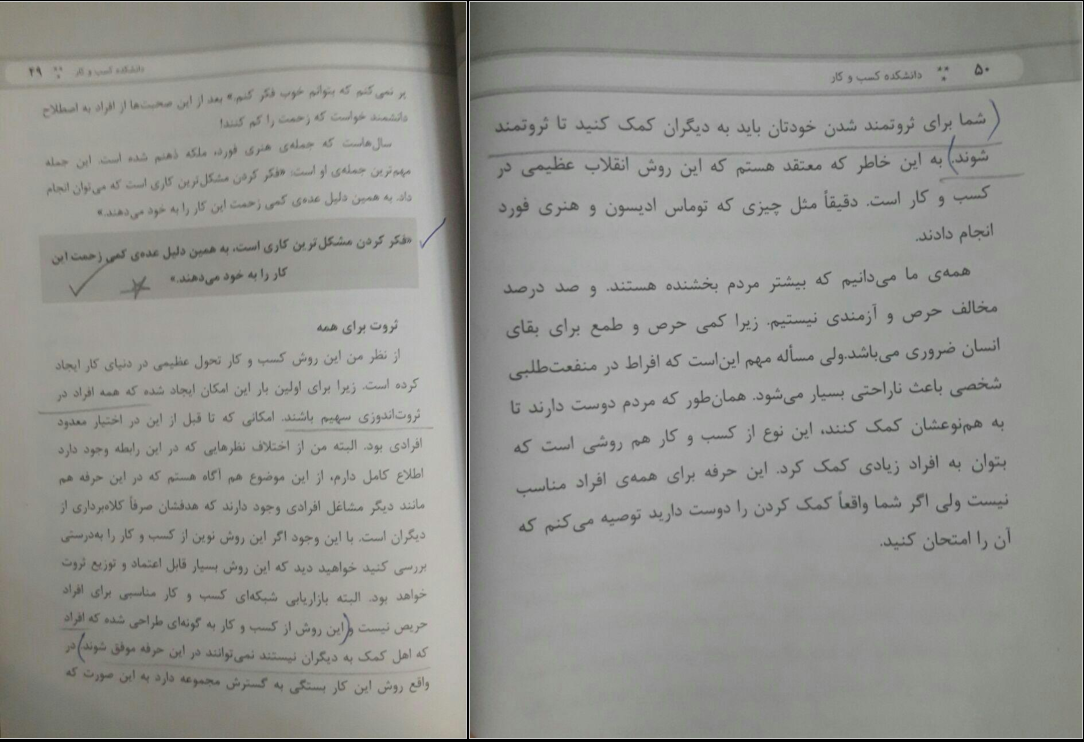 ۴۹ دانشکده کسب و کار
پر نمی‌کنم که بتوانم خوب فکر کنم.» بعد از این صحبت‌ها از افراد به اصطلاح
دانشمند خواست که زحمت را کم کنند!
سال‌هاست که جمله‌ی هنری فورد، ملکه ذهنم شده است. این جمله
مهم‌ترین جمله‌ی او است: «فکر کردن مشکل‌ترین کاری است که می‌توان انجام
داد. به همین دلیل عده‌ی کمی زحمت این کار را به خود می‌دهند.»
«فکر کردن مشکل‌ترین کاری است، به همین دلیل عده‌ی کمی زحمت این
کار را به خود می‌دهند.»
ثروت برای همه
از نظر من این روش کسب و کار تحول عظیمی در دنیای کار ایجاد
کرده است. زیرا برای اولین بار این امکان ایجاد شده که همه افراد در
ثروت‌اندوزی سهیم باشند. امکانی که تا قبل از این در اختیار معدود
افرادی بود. البته من از اختلاف نظرهایی که در این رابطه وجود دارد
اطلاع کامل دارم، از این موضوع هم آگاه هستم که در این حرفه هم
مانند دیگر مشاغل افرادی وجود دارند که هدفشان صرفاً کلاه‌برداری از
دیگران است. با این وجود اگر این روش نوین از کسب و کار را به‌درستی
بررسی کنید خواهید دید که این روش بسیار قابل اعتماد و توزیع ثروت
خواهد بود. البته بازاریابی شبکه‌ای کسب و کار مناسبی برای افراد
حریص نیست و این روش از کسب و کار به گونه‌ای طراحی شده که افراد
که اهل کمک به دیگران نیستند نمی‌توانند در این حرفه موفق شوند در
واقع روش این کار بستگی به گسترش مجموعه دارد به این صورت که
۵۰ دانشکده کسب و کار
شما برای ثروتمند شدن خودتان باید به دیگران کمک کنید تا ثروتمند
شوند. به این خاطر که معتقد هستم که این روش انقلاب عظیمی در
کسب و کار است. دقیقاً مثل چیزی که توماس ادیسون و هنری فورد
انجام دادند.
همه‌ی ما می‌دانیم که بیشتر مردم بخشنده هستند. و صد درصد
مخالف حرص و آزمندی نیستیم. زیرا کمی حرص و طمع برای بقای
انسان ضروری می‌باشد.ولی مسأله مهم این‌است که افراط در منفعت‌طلبی
شخصی باعث ناراحتی بسیار می‌شود. همان‌طور که مردم دوست دارند تا
به هم‌نوعشان کمک کنند، این نوع از کسب و کار هم روشی است که
بتوان به افراد زیادی کمک کرد. این حرفه برای همه‌ی افراد مناسب
نیست ولی اگر شما واقعاً کمک کردن را دوست دارید توصیه می‌کنم که
آن را امتحان کنید.